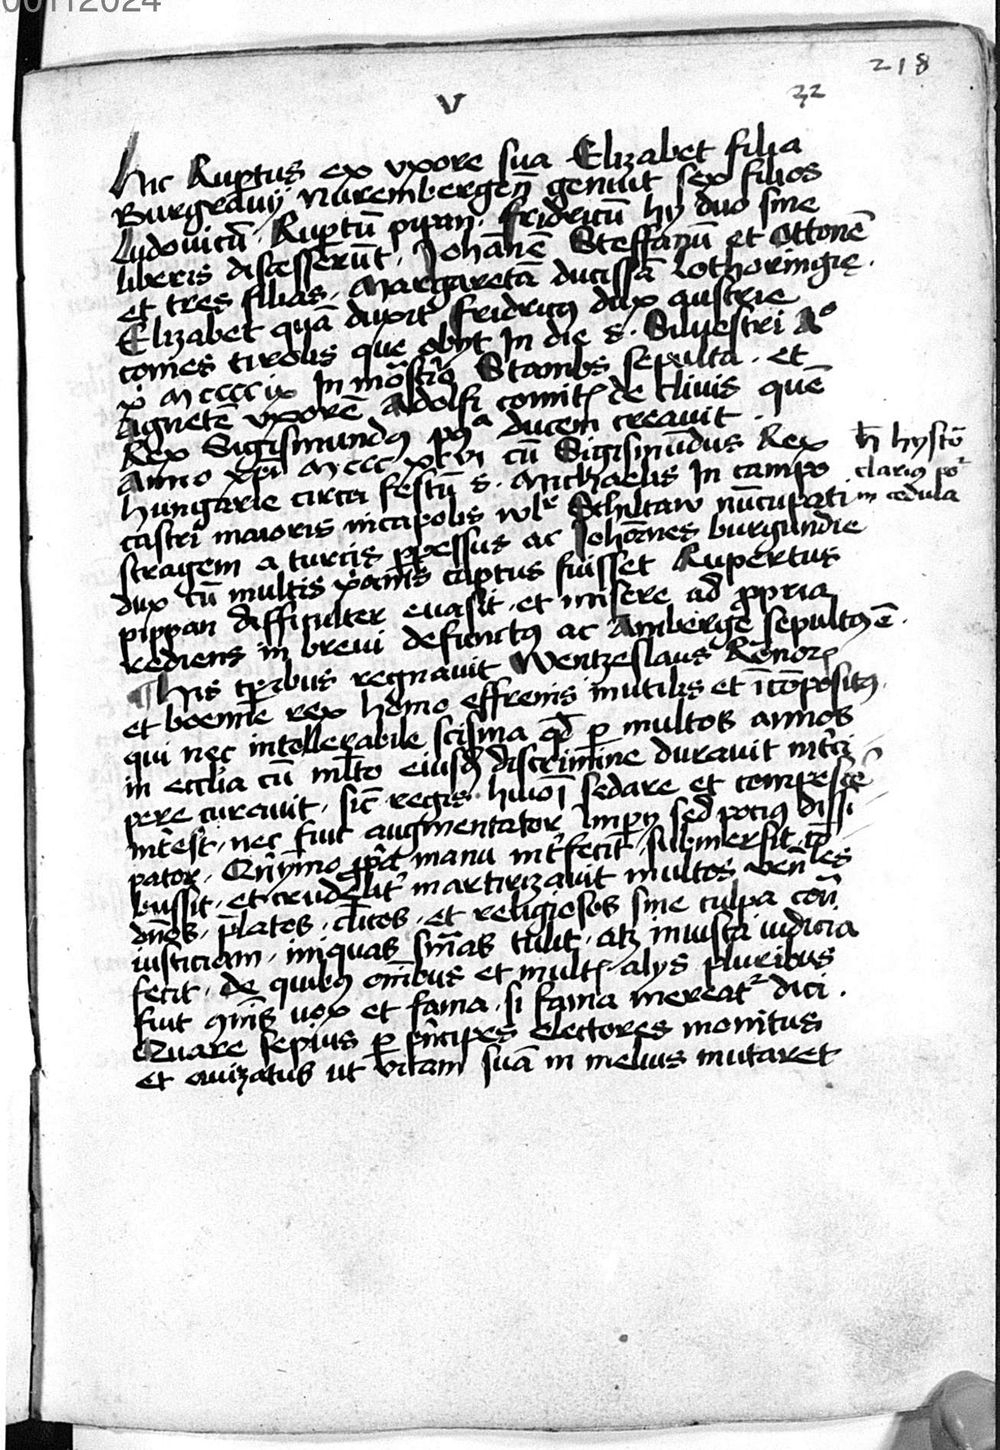 00112024
218
V
32
Hic Rup̱tus ex vxore sua Elizabet filia
Burgrauij Nurembergen̄ genuit sex filios
Ludouicū . Rup̱tū pipan . fridricū hy duo sine
liberis discesserūt . Johānē Steffanū et Ottonē
et tres filias . Margaretā ducissā Lothoringię .
Elizabet quā duxit fridricꝰ dux austrie
comes tirolis que obijt In die s. Siluestri Aº
Mccccix In Stambs sepulta . et
Agnetē vxorē Adolfi comitꝭ de cliuis quē
Rex Sigismundꝰ pꝰª ducem creauit .
Anno Mccc xcvi cū Sigismūdus Rex
hungarie circa festū s. Michaelis In campo
castri maioris nicapolis vlʳ Schiltaw nūcupati
stragem a turcis ꝑpessus ac Johānes burgundie
dux cū multis xp̄ianis captus fuisset Rupertus
pippan difficulter euasit . et misere ad ꝓpria
rediens in breui defunctꝰ ac Amberge sepultꝰ ē .
h̄ hystō
clariꝰ poʳ
in cedula
¶ His tꝑibus regnauit Wentzeslaus Rōnoꝝ
et boemie rex homo effrenis inutilis et īcōpositꝰ .
qui nec intollerabile scisma qd̄ ꝑ multos annos
in ecclīa cū ml̄to eiusdꝫ discrimine durauit
pere curauit . sic̄ regis sedare et compescē
int̄est . nec fuit augmentator Imp̱ij sed pociꝰ dissi
pator . Qn̄ymo ꝓp̄a manu int̄fecit . submersit . cō
bussit . et crudelit̄ martirizauit multos ven̄les
dn̄os . p̄latos . cl̄icos . et religiosos sine culpa con̄
iusticiam . iniquas sn̄ias tulit . atꝫ iniusta iudicia
fecit . de quibꝰ om̄ibus et multꝭ alys pluribus
fuit vox et fama . si fama mereatʳ dici .
Quare sepius ꝑ pn̄cipes electores monitus
et auizatus ut vitam suā in melius mutaret